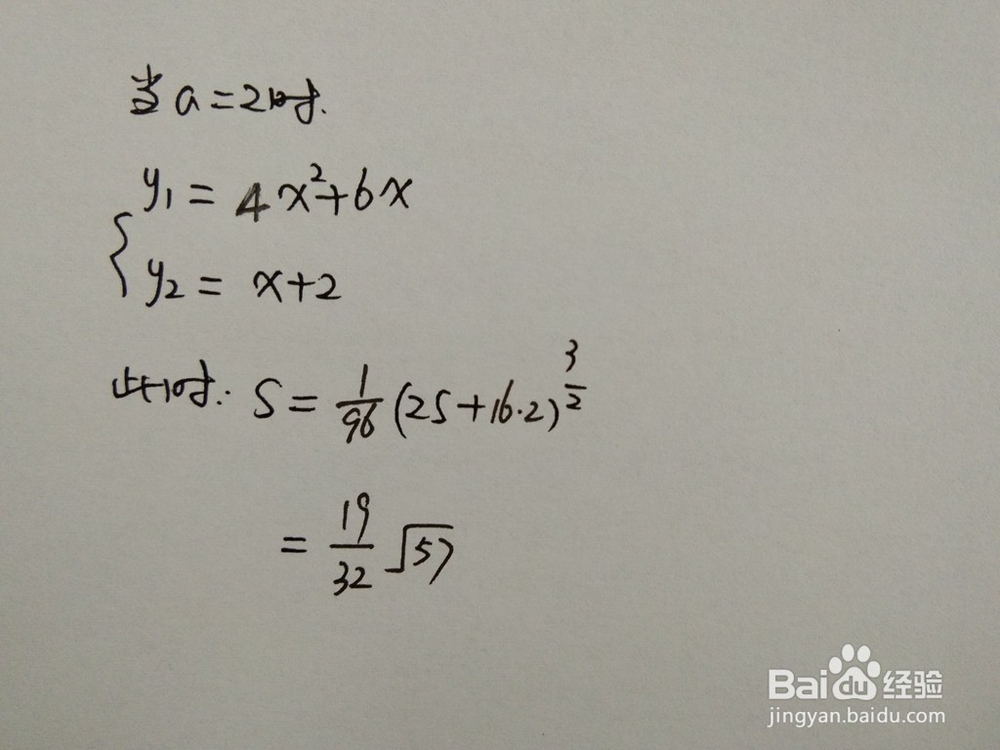 当a=2时.
y₁ = 4x²+6x
y₂ = x+2
此时: S = 1/96 (25+16·2)^(3/2)
= 19/32 √57
Baidu经验
jingyan.baidu.com